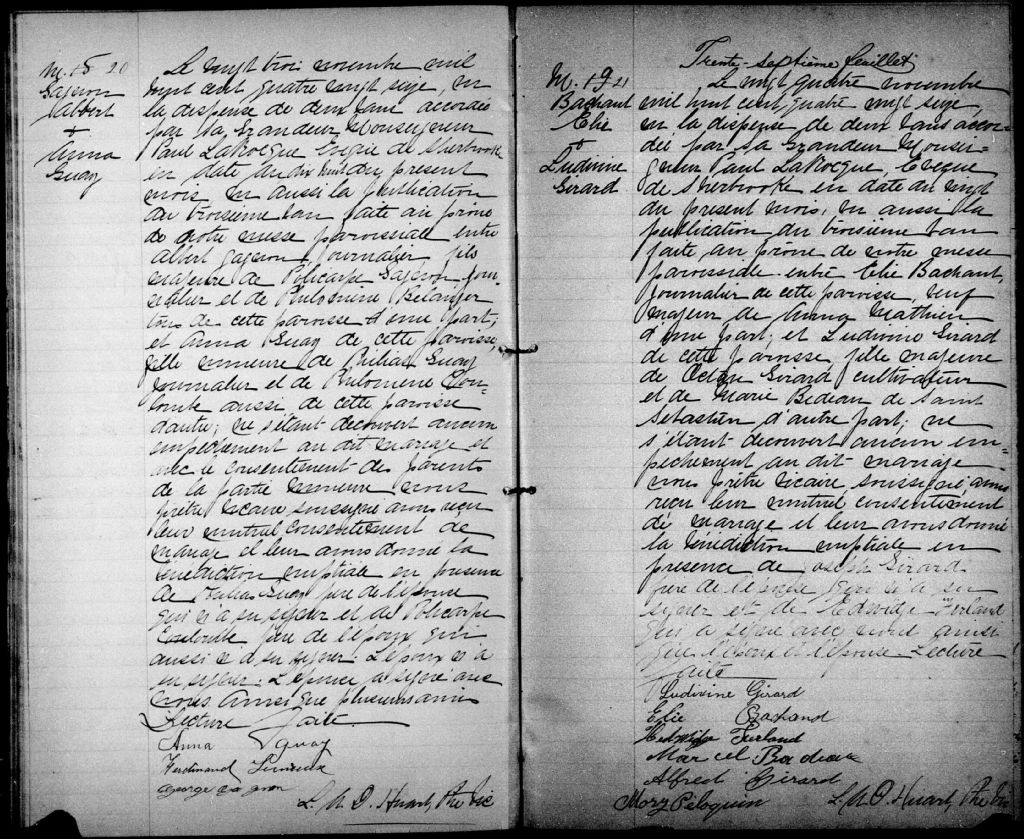 M. 15 20
Gagnon
Albert
+
Anna
Guay
Le vingt trois novembre mil
huit cent quatre vingt seize, vu
la dispense de deux bans accordée
par Sa Grandeur Monseigneur
Paul LaRocque Evêque de Sherbrooke
en date du dix huit du present
mois vu aussi la publication
du troisième ban faite au prône
de notre messe paroissiale entre
Albert Gagnon, journalier, fils
majeur de Policarpe Gagnon jour-
nalier et de Philomene Belanger
tous de cette paroisse d'une part;
et Anna Guay de cette paroisse,
fille mineure de Guay
journalier et de Philomene Cou-
lombe aussi de cette paroisse
d'autre; ne s'étant decouvert aucun
empechement au dit mariage et
avec le consentement des parents
de la partie mineure nous
prêtre vicaire soussigné avons reçu
leur mutuel consentement de
mariage et leur avons donné la
bénédiction nuptiale en presence
de Guay père de l'épouse
qui n'a su signer et de Policarpe
père de l'époux qui
aussi n'a su signer. L'époux n'a
su signer. L'épouse a signé avec
nous ainsi que plusieurs amis
Lecture faite.
Anna Guay
Ferdinand Lemieux
George Gagnon
L. A. O. Huart, Ptre Vic
Trente-septième feuillet
M. 19 21
Bachant
Elie
+
Ludivine
Girard
Le vingt quatre novembre
mil huit cent quatre vingt seize,
vu la dispense de deux bans accor-
dée par Sa Grandeur Monsei-
gneur Paul LaRocque, Evêque
de Sherbrooke en date du vingt
du present mois, vu aussi la
publication du troisième ban
faite au prône de notre messe
paroissiale entre Elie Bachant,
journalier de cette paroisse, veuf
majeur de Anna Mathieu
d'une part; et Ludivine Girard
de cette paroisse fille majeure
de Girard cultivateur
et de Marie Bedeau de Saint
Sebastien d'autre part; ne
s'étant decouvert aucun em-
pêchement au dit mariage
nous prêtre vicaire soussigné avons
reçu leur mutuel consentement
de mariage et leur avons donné
la bénédiction nuptiale en
presence de Joseph Girard
père de l'épouse qui n'a su
signer et de Edwidge Ferland
qui a signé avec nous ainsi
que l'époux et l'épouse. Lecture
faite
Ludivine Girard
Elie Bachand
Hedwidge Ferland
Marcel Badeau
Alfred Girard
Mary Péloquin L. A. O. Huart, Ptre Vic